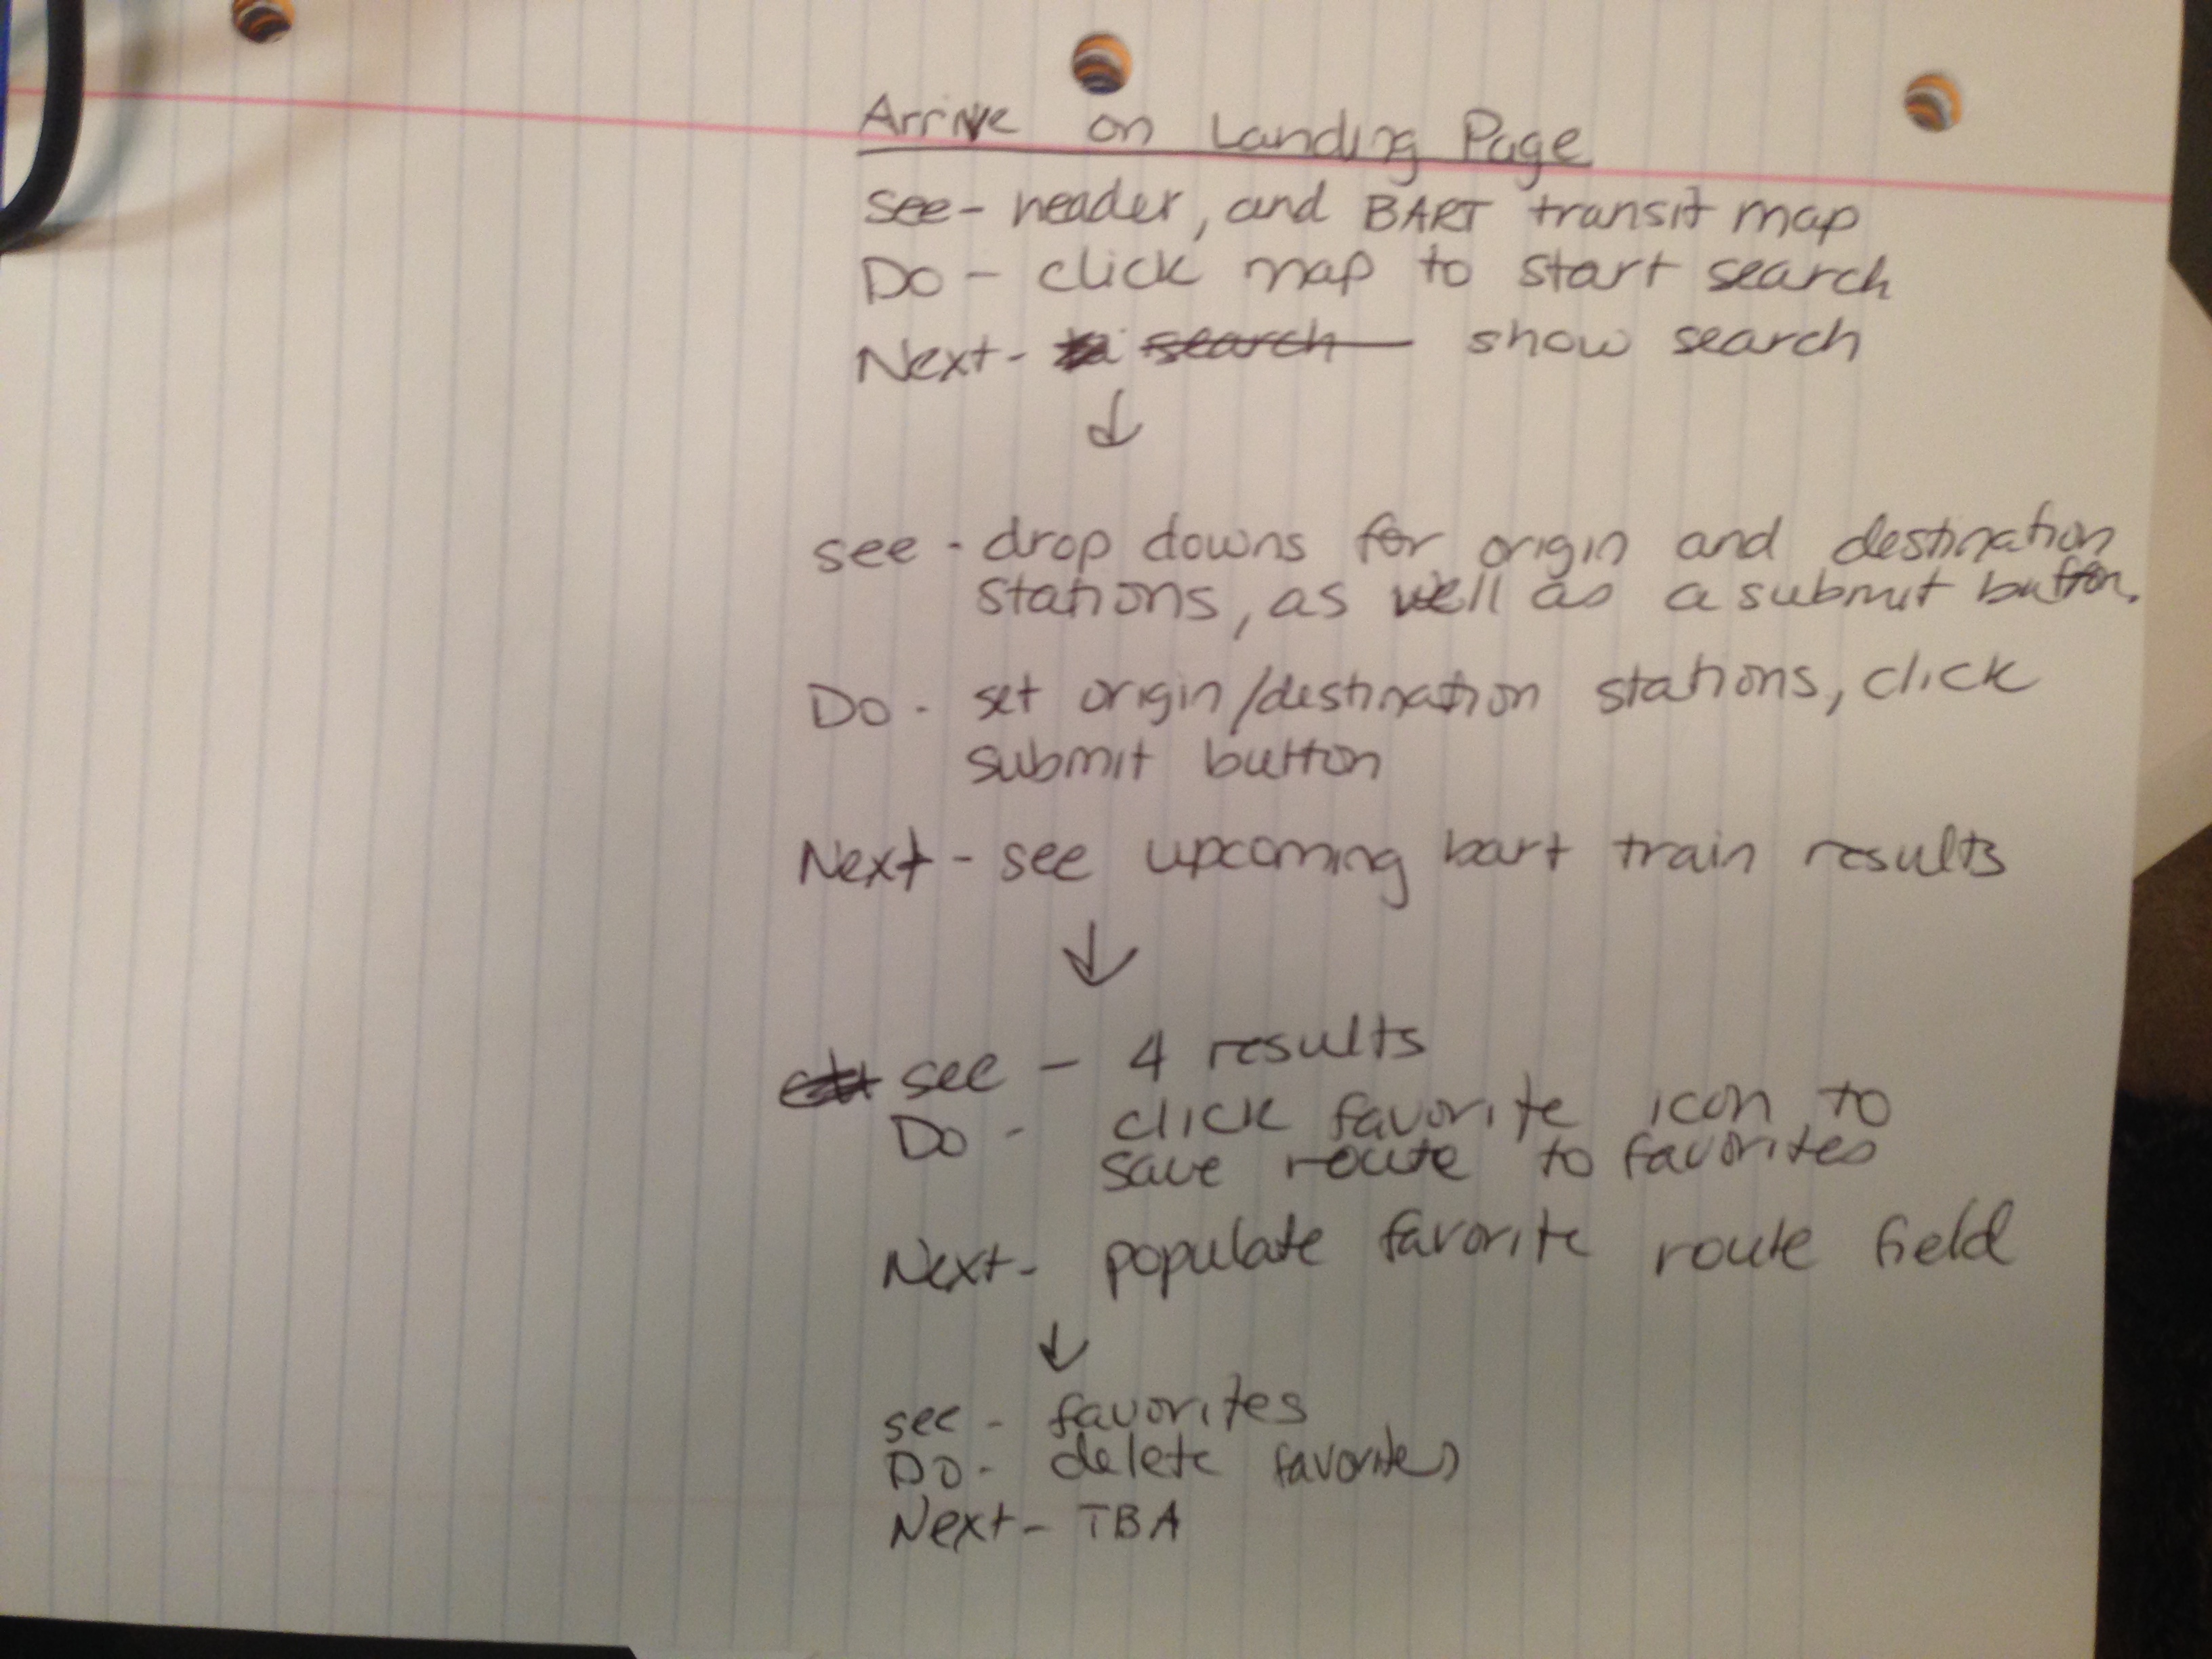 Arrive on Landing Page
see - header, and BART transit map
Do - click map to start search
Next - search show search
see - drop downs for origin and destination
stations, as well as a submit button.
Do - set origin/destination stations, click
submit button
Next - see upcoming bart train results
see - 4 results
Do - click favorite icon to
save route to favorites
Next - populate favorite route field
see - favorites
Do - delete favorites
Next - TBA